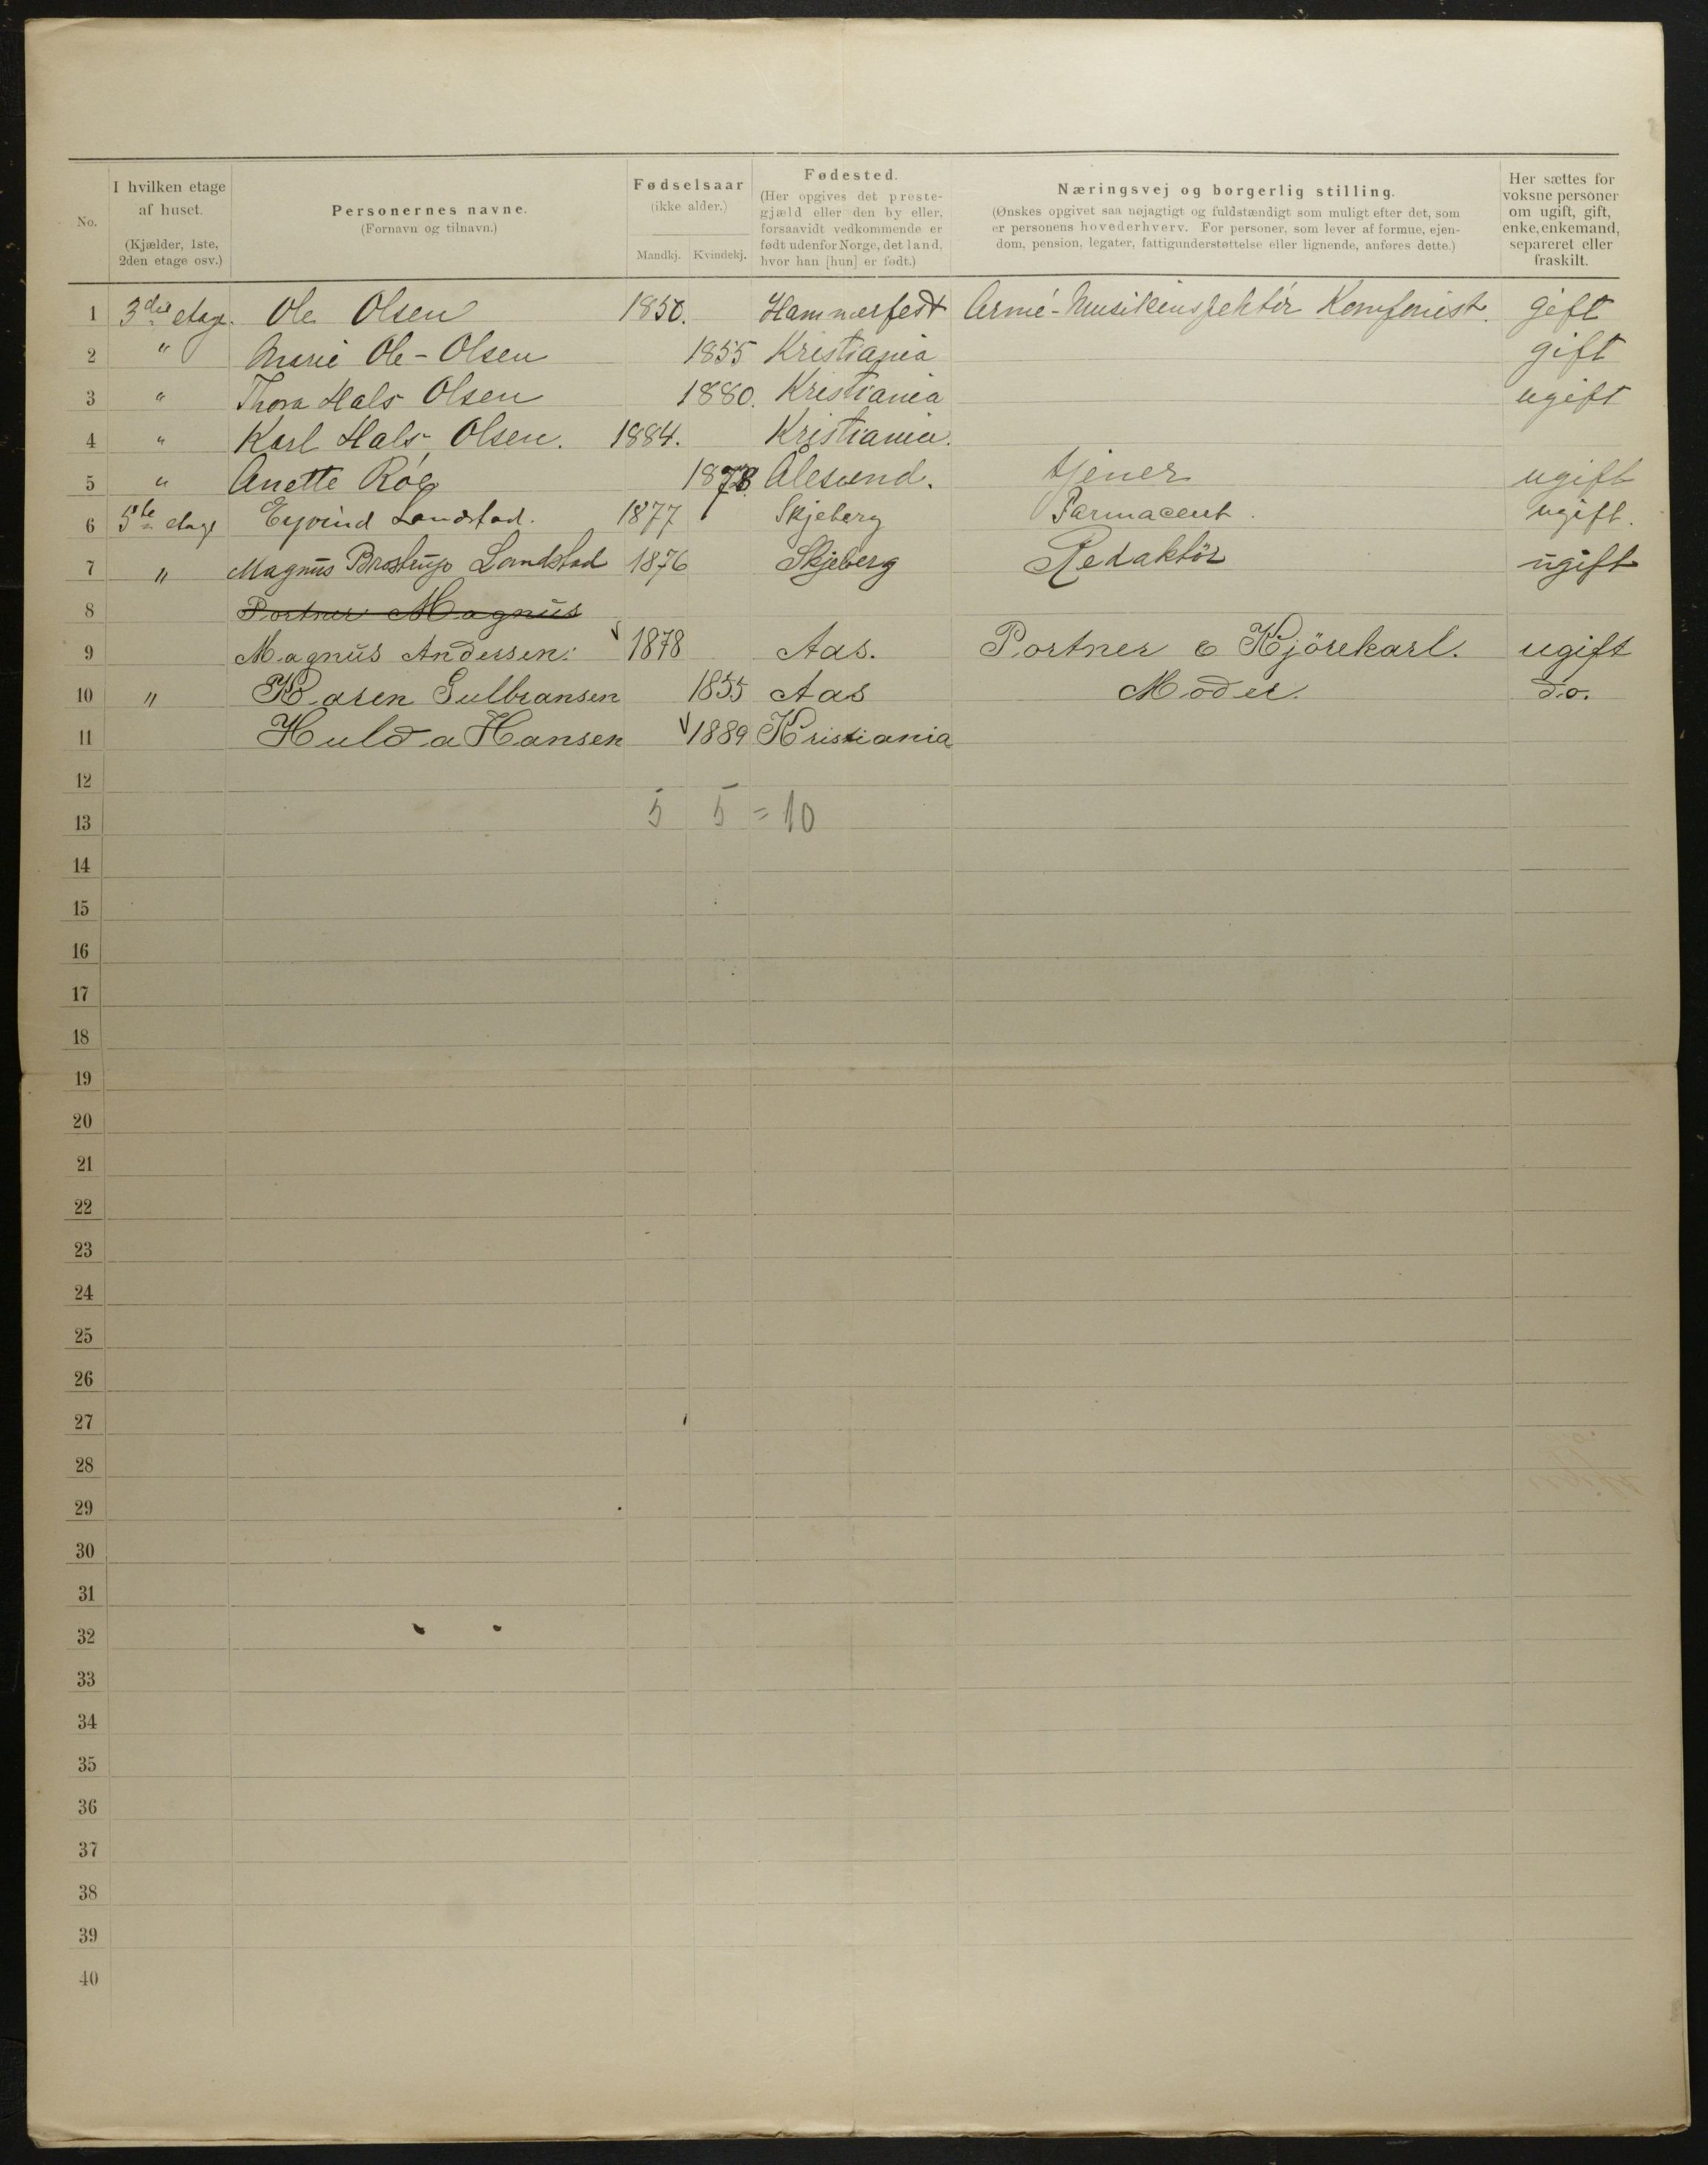 No.
I hvilken etage af huset.
(Kjælder, 1ste, 2den etage osv.)
Personernes navne.
(Fornavn og tilnavn.)
Fødselsaar
(ikke alder.)
Mandkj. Kvindekj.
Fødested.
(Her opgives det præstegjæld eller den by eller, forsaavidt vedkommende er født udenfor Norge, det land, hvor han [hun] er født.)
Næringsvej og borgerlig stilling.
(Ønskes opgivet saa nøjagtigt og fuldstændigt som muligt efter det, som er personens hovederhverv. For personer, som lever af formue, ejendom, pension, legater, fattigunderstøttelse eller lignende, anføres dette.)
Her sættes for voksne personer om ugift, gift, enke, enkemand, separeret eller fraskilt.
1 3die etage. Ole Olsen 1850. Hammerfest Armé-Musikinspektör Komponist. gift
2 " Marie Ole-Olsen 1855 Kristiania gift
3 " Thora Hals Olsen 1880. Kristiania ugift
4 " Karl Hals Olsen. 1884. Kristiania.
5 " Anette Röe 1878 Ålesund. tjener ugift
6 5te etage Eyvind Landstad. 1877 Skjeberg Farmaceut. ugift.
7 " Magnus Brostrup Landstad 1876 Skjeberg Redaktör ugift
8 Portner Magnus
9 Magnus Andersen. 1878 Aas. Portner & Kjörekarl. ugift
10 " Karen Gulbransen 1855 Aas Moder. do.
11 Hulda Hansen 1889 Kristiania
12
13 5 5 = 10
14
15
16
17
18
19
20
21
22
23
24
25
26
27
28
29
30
31
32
33
34
35
36
37
38
39
40